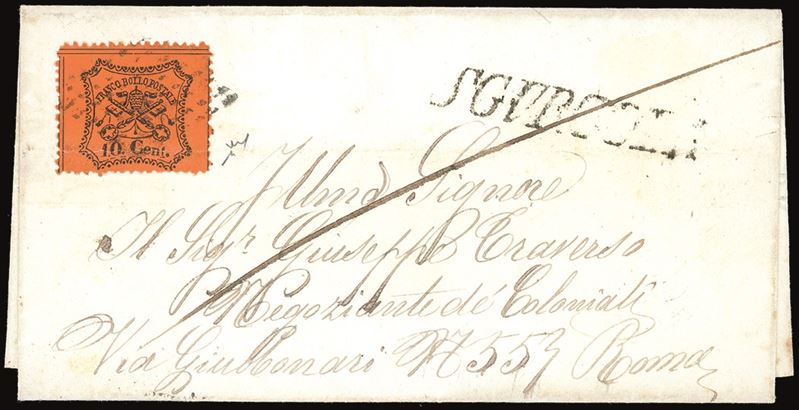 FRANCO BOLLO POSTALE
10 Cent.
SGURGOLA
Illmo Signore
Il Sigr Giuseppe Traverso
Negoziante de Coloniali
Via Giubbonari N 55
Roma